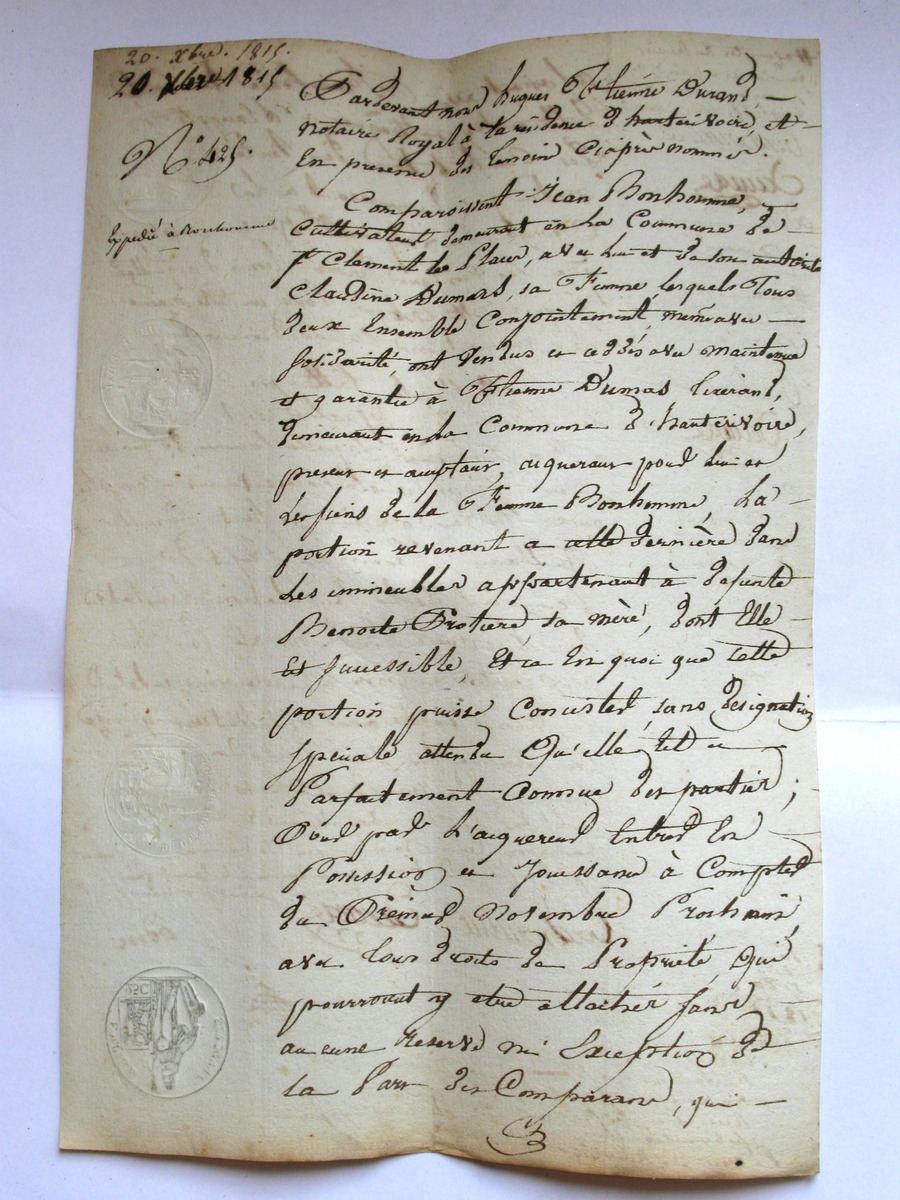 20. Xbre. 1815.
20. Xbre 1815
N.o 425.
Expedié à Bonhomme
Pardevant nous hugues Etienne Durand, —
notaire Royal à la résidence d'hauterivoire, et —
En presence des temoins Ciaprès nommés.
Comparoissent Jean Bonhomme, —
Cultivateur demeurant en la Commune de —
St Clement les Places, avec lui et de son autorité
Claudine Dumas, sa Femme, lesquels Tous
deux Ensemble Conjointement, même avec —
Solidarité, ont Vendus et ceddés avec maintenue
et garantie à Etienne Dumas tixerand,
demeurant en la Commune d'hauterivoire,
present et acceptant, acquereur pour lui et
les siens de la Femme Bonhomme, La —
portion revenant a cette dernière dans
les immeubles appartenant à defunte
Benoite Protiere sa mère, dont Elle —
Est successible, Et ce En quoi que cette
portion puisse Concister, sans designation
speciale attendu Qu'elle Est —
Parfaitement Connue des parties;
Pour par L'acquereur Entrer En —
Possession et Jouissance à Compter
du Premier Novembre Prochain,
avec tous droits de Propriété, Qui
pourront y etre attachés sans —
aucune Reserve ni Exception de
la Part des Comparans, qui —